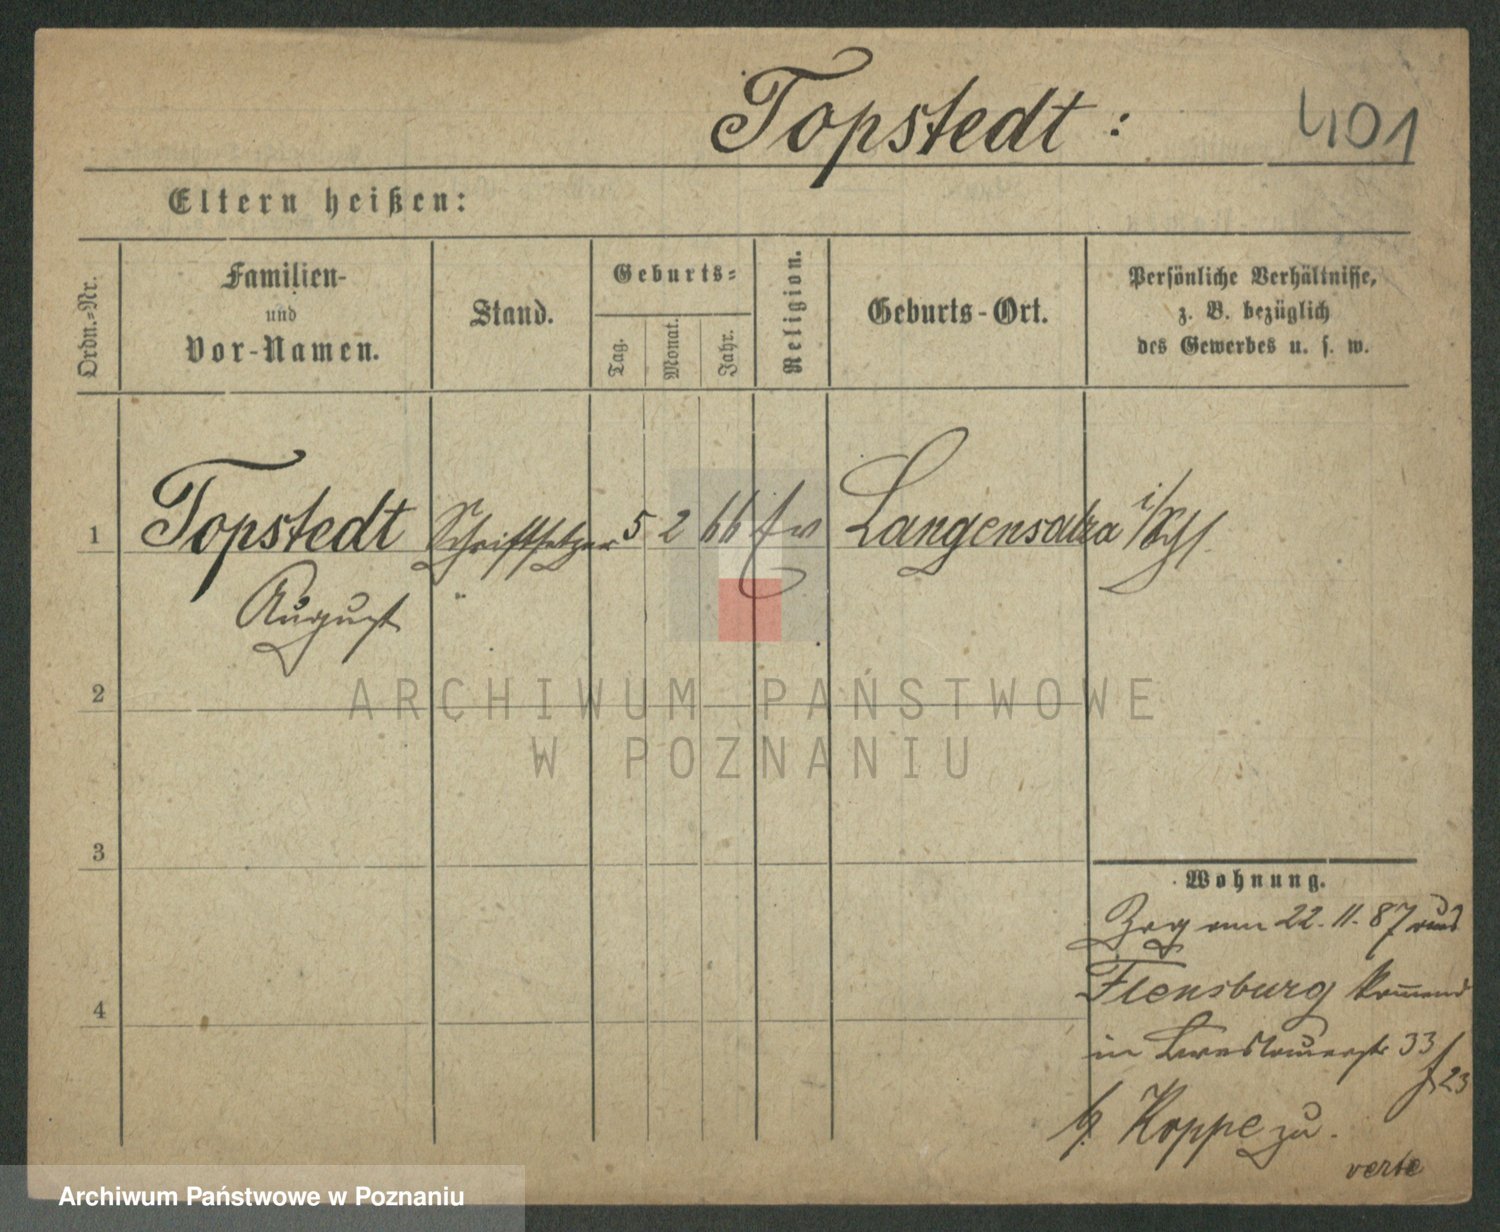 Topstedt :
401
Eltern heißen:
Ordn.-Nr.
Familien-
und
Vor-Namen.
Stand.
Geburts-
Tag.
Monat.
Jahr.
Religion.
Geburts-Ort.
Persönliche Verhältnisse,
z. B. bezüglich
des Gewerbes u. s. w.
1 Topstedt Schriftsetzer 5 2 66 ev Langensalza i/
August
2
ARCHIWUM PAŃSTWOWE
W POZNANIU
3
Wohnung.
Zzg am 22.11.87 aus
Flensburg kommend
4
in Breslauerstr 33
23
b. Koppe zu.
verte
Archiwum Państwowe w Poznaniu